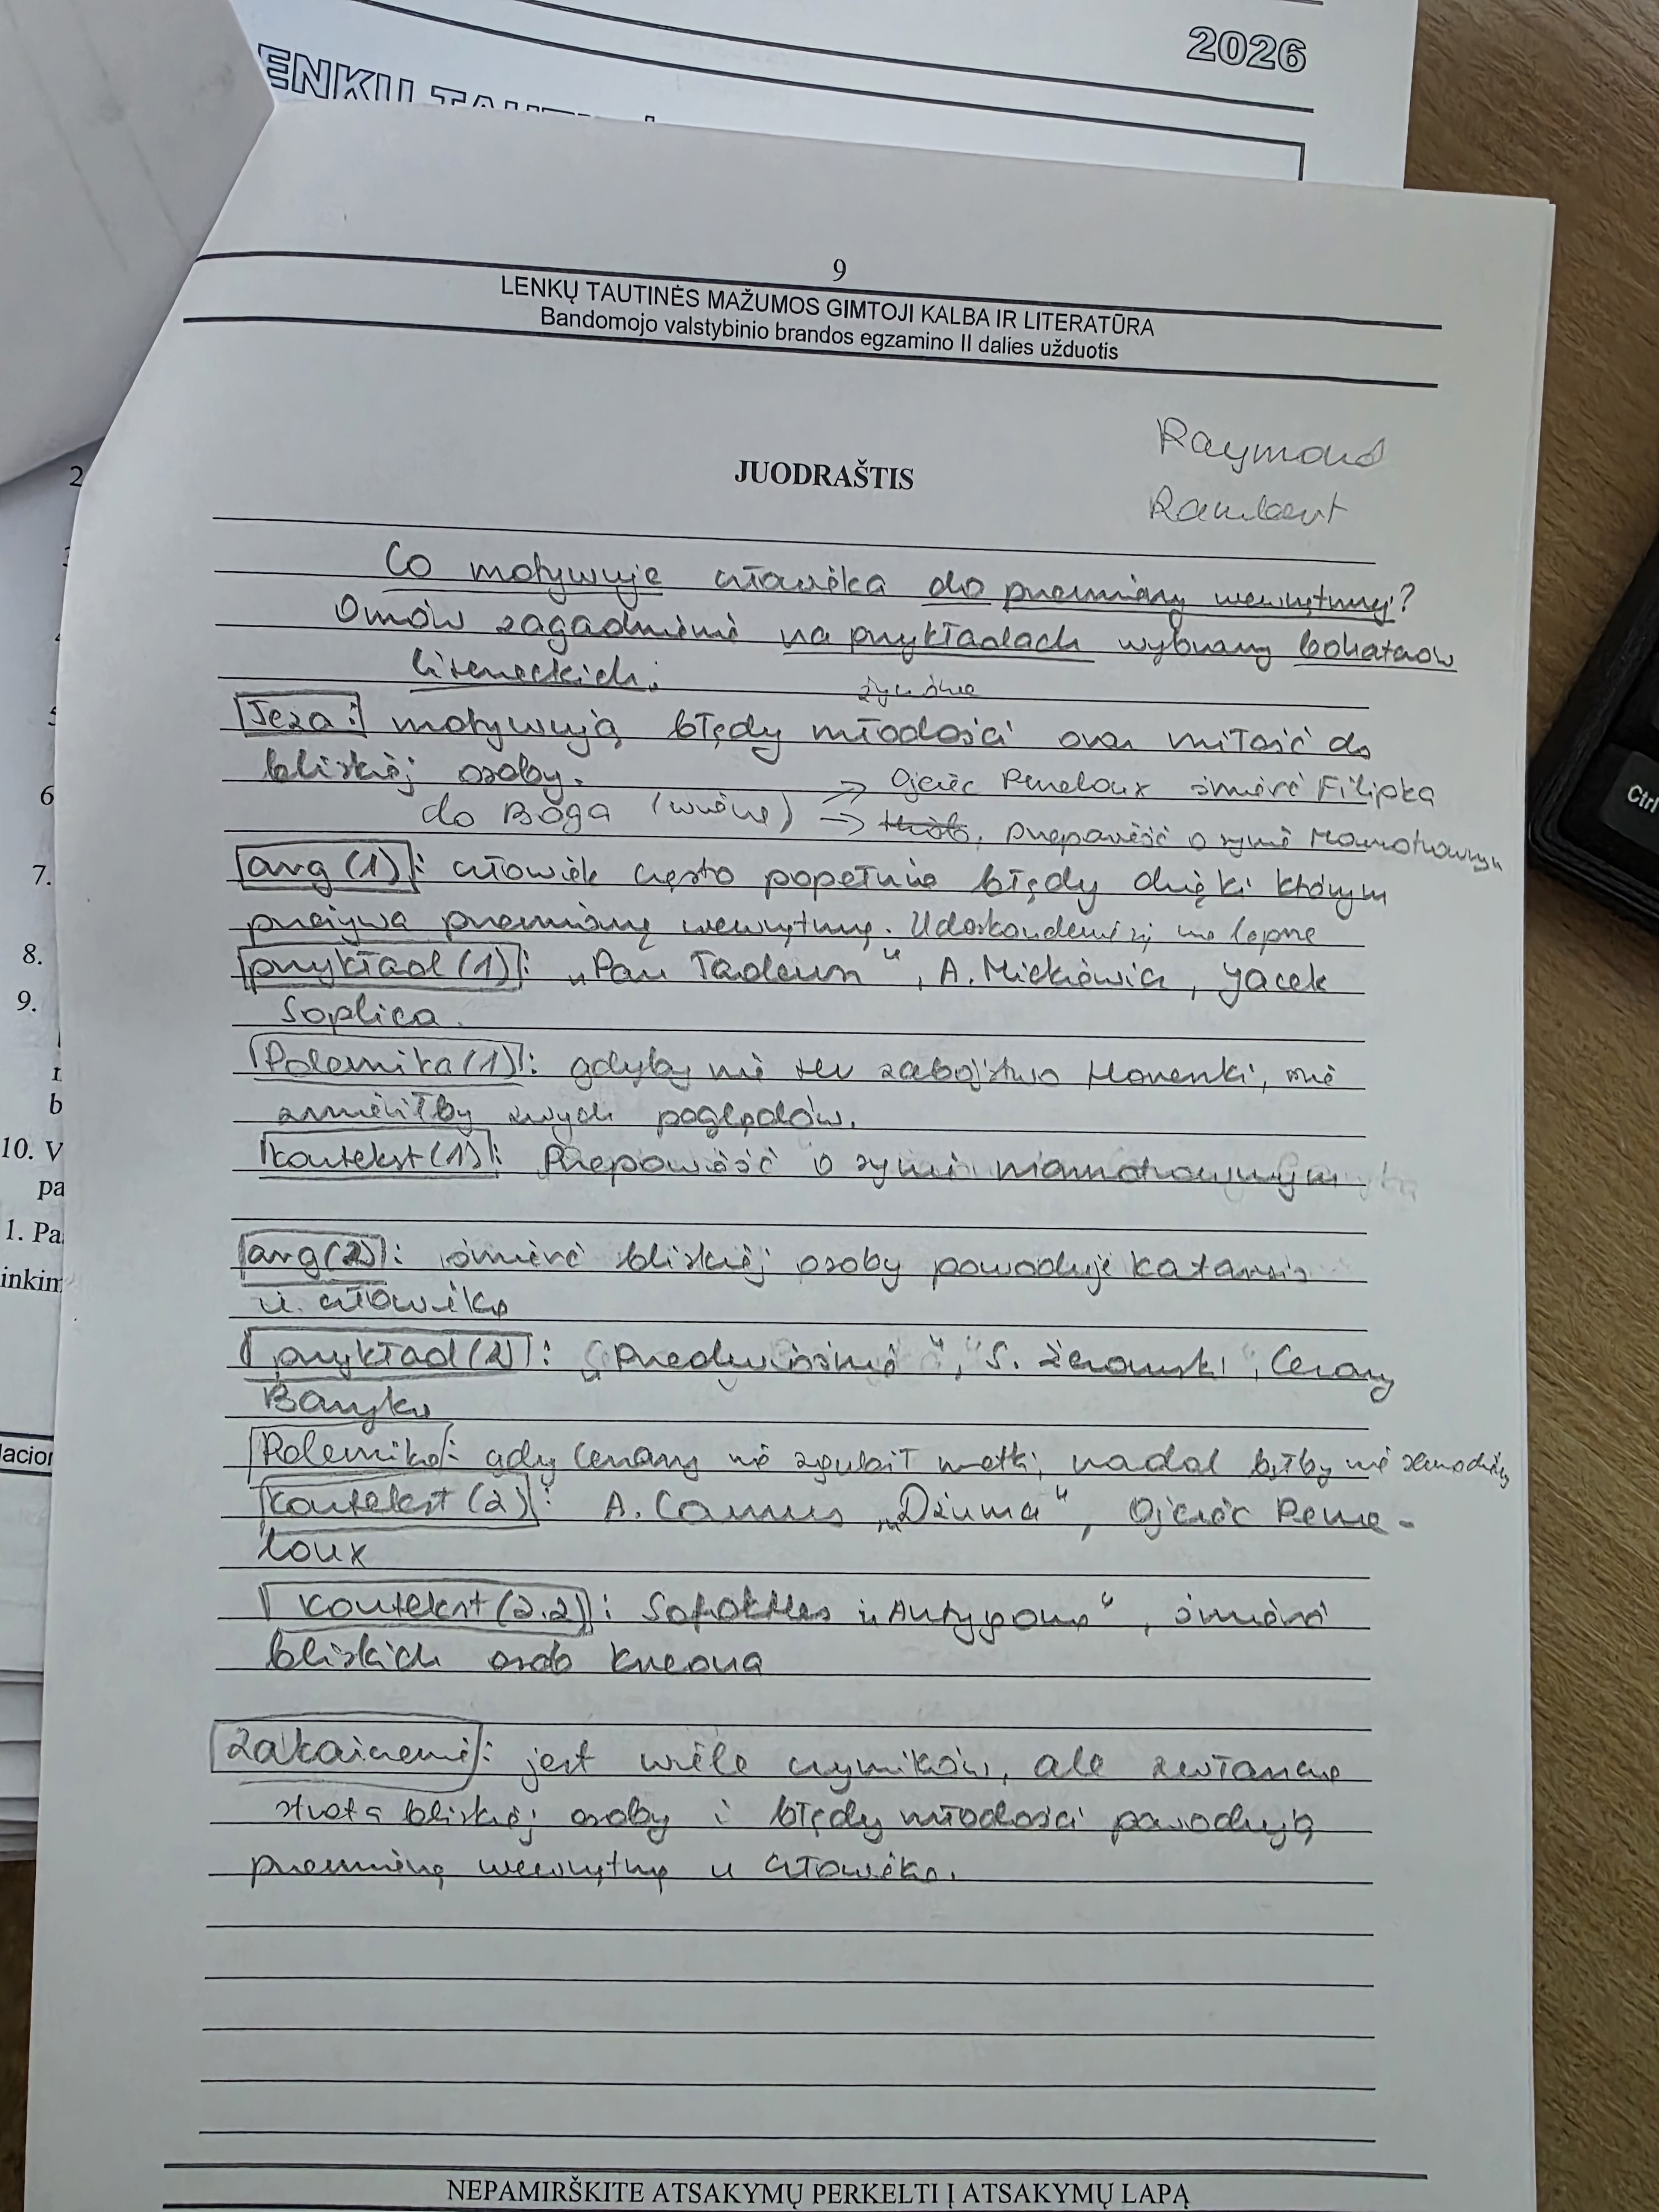 2026
ENKŲ TAUT
9
LENKŲ TAUTINĖS MAŽUMOS GIMTOJI KALBA IR LITERATŪRA
Bandomojo valstybinio brandos egzamino II dalies užduotis
Raymond
JUODRAŠTIS
Rambert
Co motywuje człowieka do przemiany wewnętrznej?
Omów zagadnienie na przykładach wybrany bohaterów
literackich.
Teza: motywują błędy młodości oraz miłość do
bliskiej osoby.
Ojciec Peneloux śmierć Filipka
do Boga (wiara) przepowieść o synie Marnotrawnym
arg (1): człowiek często popełnia błędy dzięki którym
przeżywa przemianę wewnętrzną. na lepsze
przykład (1): „Pan Tadeusz", A. Mickiewicz, Jacek
Soplica.
Polemika (1): gdyby nie ten zabójstwo Horeszki, nie
zmieniłby swych poglądów.
kontekst (1): Przepowieść o synie marnotrawnym
arg (2): śmierć bliskiej osoby powoduje katarsis
u człowieka
przykład (2): „Przedwiośnie", S. Żeromski, Cezary
Baryka
Polemika: gdy Cezary nie zgubił matki, nadal byłby nie
kontekst (2): A. Camus „Dżuma", Ojciec Pene-
loux
kontekst (2.2): Sofokles „Antygona", śmierć
bliskich osób Kreona
Zakończenie: jest wiele czynników, ale zwłaszcza
strata bliskiej osoby i błędy młodości powodują
przemianę wewnętrzną u człowieka.
NEPAMIRŠKITE ATSAKYMŲ PERKELTI Į ATSAKYMŲ LAPĄ
2
6
7.
8.
9.
10. V
pa
1. Pa
inkim
lacion
Ctrl